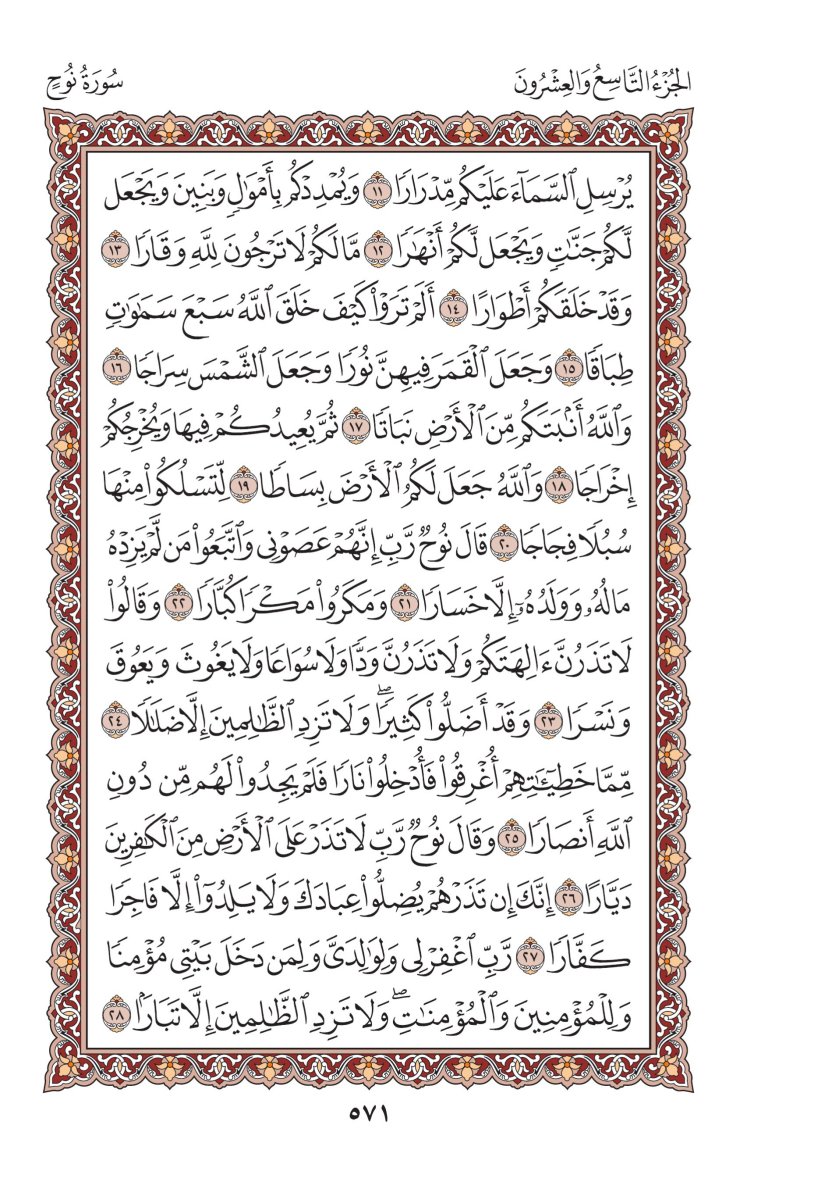 الجُزْءُ التَّاسِعُ وَالعِشْرُونَ
سُورَةُ نُوحٍ
يُرْسِلِ ٱلسَّمَآءَ عَلَيْكُم مِّدْرَارًا ١١ وَيُمْدِدْكُم بِأَمْوَٰلٍ وَبَنِينَ وَيَجْعَل
لَّكُمْ جَنَّٰتٍ وَيَجْعَل لَّكُمْ أَنْهَٰرًا ١٢ مَّا لَكُمْ لَا تَرْجُونَ لِلَّهِ وَقَارًا ١٣
وَقَدْ خَلَقَكُمْ أَطْوَارًا ١٤ أَلَمْ تَرَوْا۟ كَيْفَ خَلَقَ ٱللَّهُ سَبْعَ سَمَٰوَٰتٍ
طِبَاقًا ١٥ وَجَعَلَ ٱلْقَمَرَ فِيهِنَّ نُورًا وَجَعَلَ ٱلشَّمْسَ سِرَاجًا ١٦
وَٱللَّهُ أَنۢبَتَكُم مِّنَ ٱلْأَرْضِ نَبَاتًا ١٧ ثُمَّ يُعِيدُكُمْ فِيهَا وَيُخْرِجُكُمْ
إِخْرَاجًا ١٨ وَٱللَّهُ جَعَلَ لَكُمُ ٱلْأَرْضَ بِسَاطًا ١٩ لِّتَسْلُكُوا۟ مِنْهَا
سُبُلًا فِجَاجًا ٢٠ قَالَ نُوحٌ رَّبِّ إِنَّهُمْ عَصَوْنِى وَٱتَّبَعُوا۟ مَن لَّمْ يَزِدْهُ
مَالُهُۥ وَوَلَدُهُۥٓ إِلَّا خَسَارًا ٢١ وَمَكَرُوا۟ مَكْرًا كُبَّارًا ٢٢ وَقَالُوا۟
لَا تَذَرُنَّ ءَالِهَتَكُمْ وَلَا تَذَرُنَّ وَدًّا وَلَا سُوَاعًا وَلَا يَغُوثَ وَيَعُوقَ
وَنَسْرًا ٢٣ وَقَدْ أَضَلُّوا۟ كَثِيرًا ۖ وَلَا تَزِدِ ٱلظَّٰلِمِينَ إِلَّا ضَلَٰلًا ٢٤
مِّمَّا خَطِيٓـَٰٔتِهِمْ أُغْرِقُوا۟ فَأُدْخِلُوا۟ نَارًا فَلَمْ يَجِدُوا۟ لَهُم مِّن دُونِ
ٱللَّهِ أَنصَارًا ٢٥ وَقَالَ نُوحٌ رَّبِّ لَا تَذَرْ عَلَى ٱلْأَرْضِ مِنَ ٱلْكَٰفِرِينَ
دَيَّارًا ٢٦ إِنَّكَ إِن تَذَرْهُمْ يُضِلُّوا۟ عِبَادَكَ وَلَا يَلِدُوٓا۟ إِلَّا فَاجِرًا
كَفَّارًا ٢٧ رَّبِّ ٱغْفِرْ لِى وَلِوَٰلِدَىَّ وَلِمَن دَخَلَ بَيْتِىَ مُؤْمِنًا
وَلِلْمُؤْمِنِينَ وَٱلْمُؤْمِنَٰتِ ۖ وَلَا تَزِدِ ٱلظَّٰلِمِينَ إِلَّا تَبَارًۢا ٢٨
٥٧١